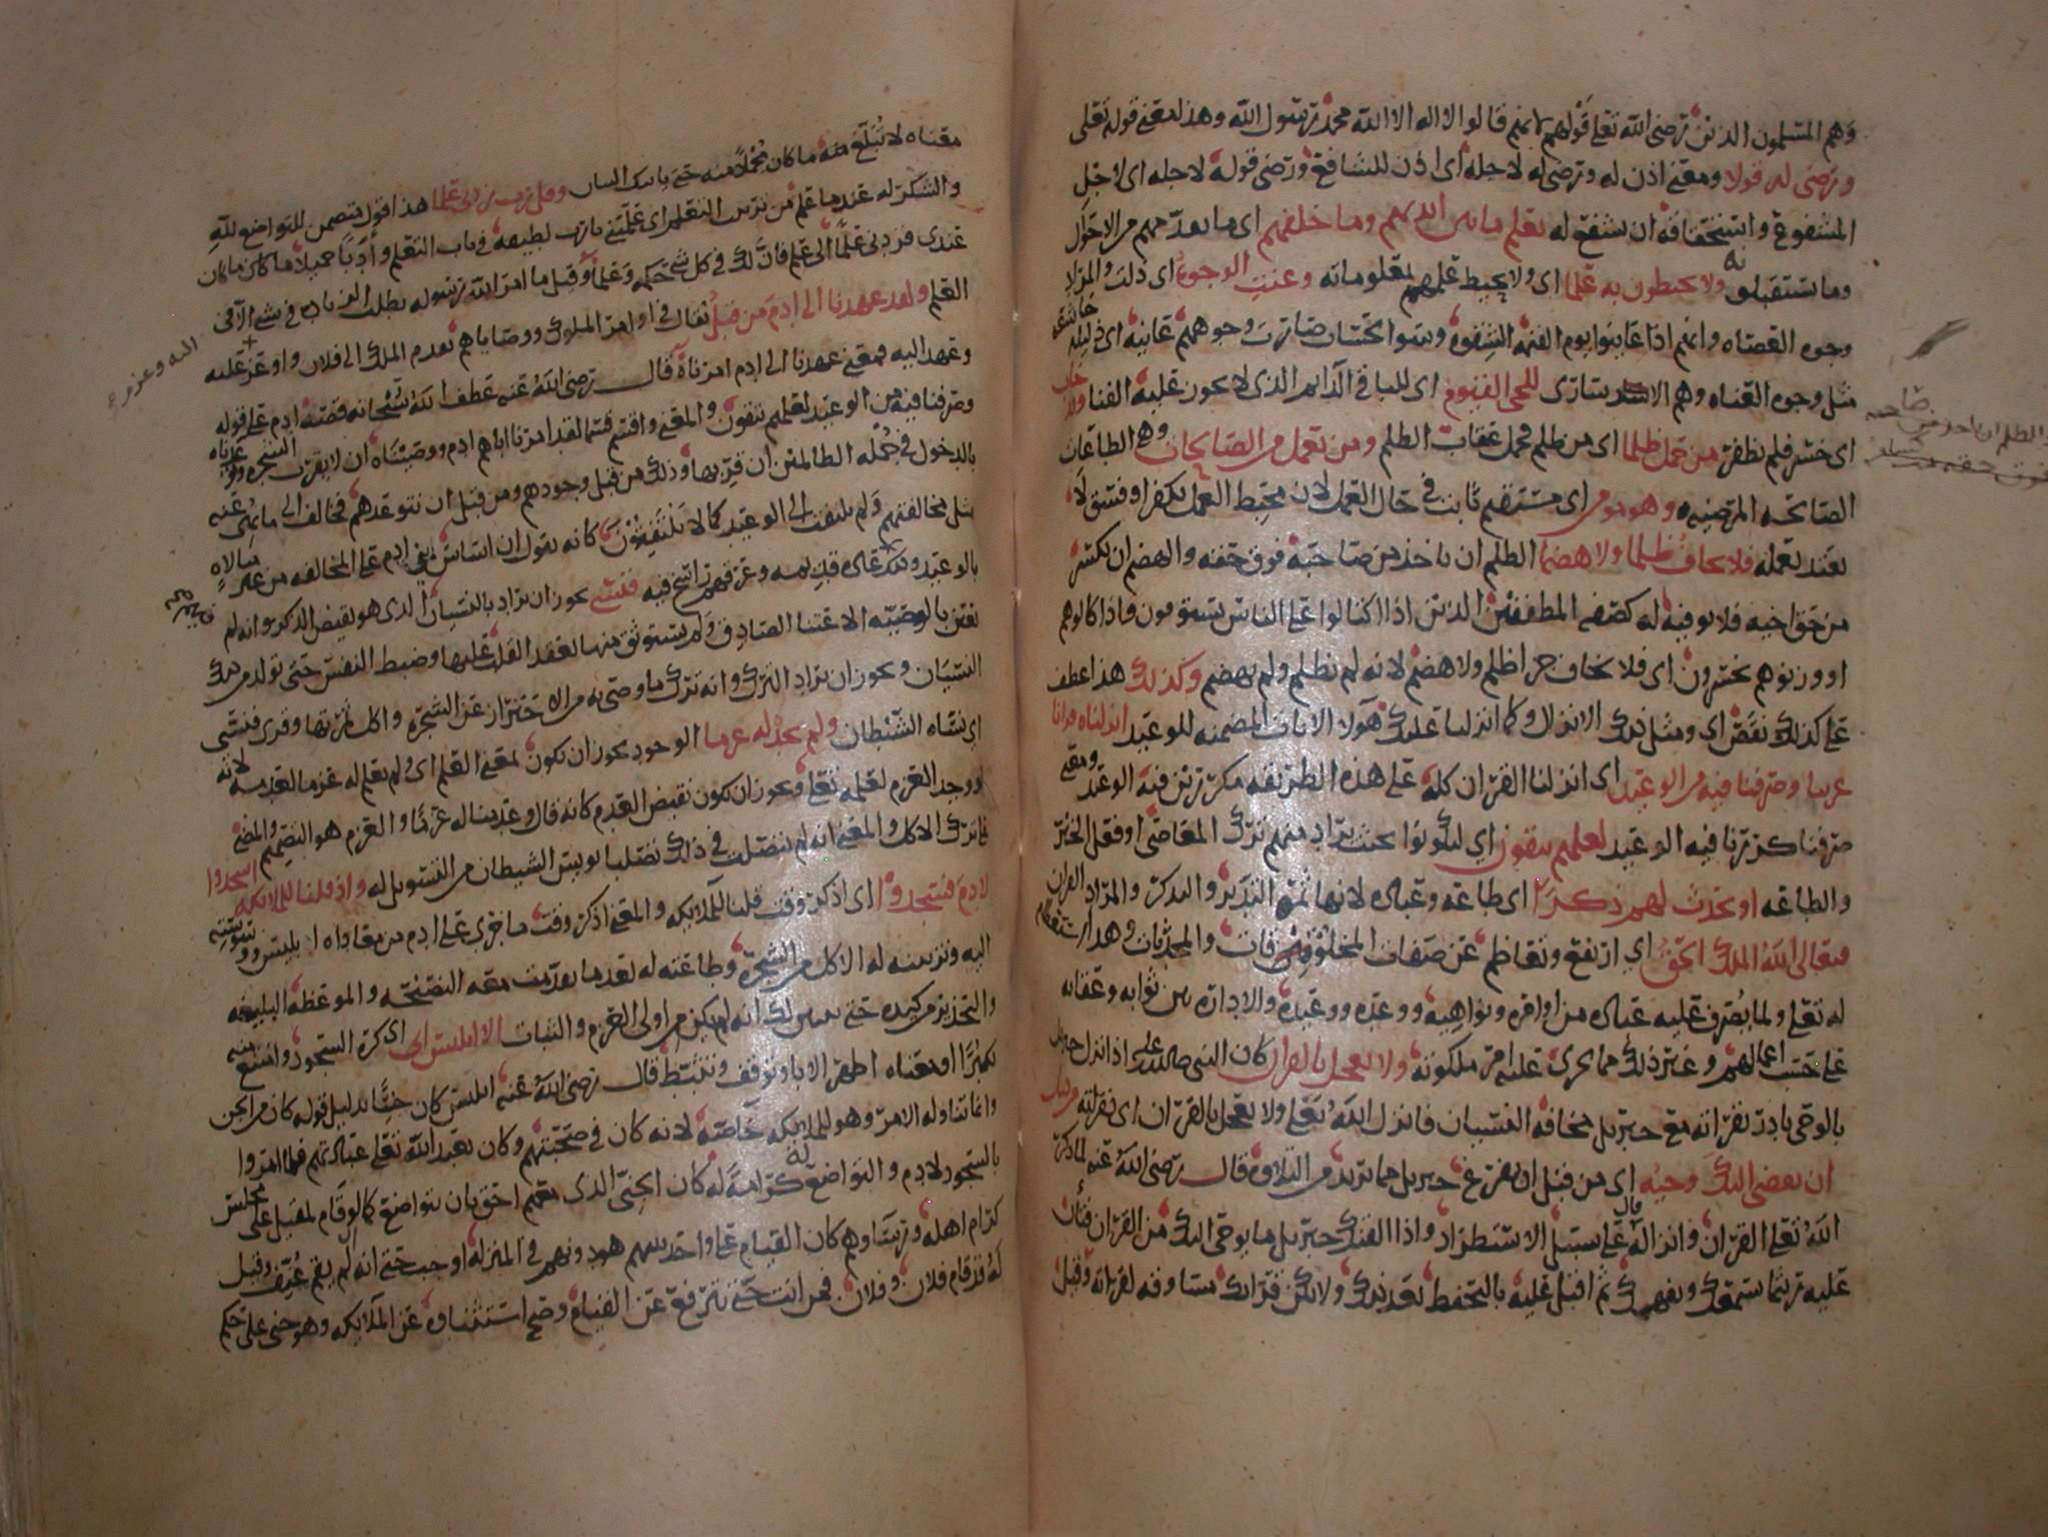 وهم المسلمون الذين رضى الله تعلى قولهم لانهم قالوا لا اله الا الله محمد رسول الله وهذا معنى قوله تعلى
ورضى له قولا ومعنى اذن له ورضى له لاجله اى اذن للشافع ورضى قوله لاجله اى لاجل
المشفوع واستحقاقه ان يشفع له يعلم ما بين ايديهم وما خلفهم اى ما تقدمهم من الاحوال
وما يستقبلونه ولا يحيطون به علما اى ولا يحيط علمهم بمعلوماته وعنت الوجوه اى ذلت والمراد
وجوه العصاه وانهم اذا عاينوا يوم القيمة الشقوة وسوء الحساب صارت وجوههم عانية اى ذليلة خاشعة
مثل وجوه العناه وهم الاسارى للحى القيوم اى للباقى الدائم الذى لا يجوز عليه الفنا وقد خاب
اى خسر فلم يظفر من حمل ظلما اى من ظلم فحمل عقاب الظلم ومن يعمل من الصالحات وهى الطاعات
الصالحه المرضيه وهو مومن اى مستقيم ثابت فى حال العمل لان محبط العمل بكفر او فسق لا
بعند بعمله فلا يخاف ظلما ولا هضما الظلم ان ياخذ من صاحبه فوق حقه والهضم ان يكسر
من حق اخيه فلا يوفيه له كصفه المطففين الذين اذا اكتالوا على الناس يستوفون واذا كالوهم
او وزنوهم يخسرون اى فلا يخاف جزا ظلم ولا هضم لانه لم يظلم ولم يهضم وكذلك هذا عطف
على كذلك نقص اى ومثل ذلك الانزال وكما انزلنا عليك هولا الايات المضمنه للوعيد انزلناه قرانا
عربيا وصرفنا فيه من الوعيد اى انزلنا القران كله على هذه الطريقه مكررين فيه الوعيد ومعنى
صرفنا كررنا فيه الوعيد لعلهم يتقون اى ليكونوا بحيث يراد منهم ترك المعاصى او فعل الخير
والطاعه او يحدث لهم ذكرا اى طاعه وعباده لانها ثمره التدبر والتذكر والمراد القران
فتعالى الله الملك الحق اى ارتفع وتعاظم عن صفات المخلوقات والمحدثات وهذا استعظام
له تعلى ولما يصرف عليه عباده من اوامره ونواهيه ووعده ووعيده والاداره بين ثوابه وعقابه
على حسب اعمالهم وغير ذلك مما يجرى عليه امر ملكوته ولا تعجل بالقران كان النبى صلى الله عليه اذا نزل جبريل
بالوحى بادر بقراته مع جبريل مخافه النسيان فانزل الله تعلى ولا تعجل بالقران اى بقراته من قبل
ان يقضى اليك وحيه اى من قبل ان يفرغ جبريل مما يريد من التلاوة قال رضى الله عنه لما ذكر
الله تعلى القران وانزاله قال على سبيل الاستطراد واذا لقنك جبريل ما يوحى اليك من القران فتان
عليه ريثما يسمعك ويفهمك ثم اقبل عليه بالتحفظ بعد ذلك ولا يكن قرانك مساوقه لقراته وقيل
الظلم ان ياخذ من صاحبه
فوق حقه
معناه لا تبلغ منه ما كان مجملا منه حتى ياتيك البيان وقل رب زدنى علما هذا قول متضمن للتواضع لله
والشكر له عندما علم من ترتيب التعلم اى علمتنى يا رب لطيفه فى باب التعلم وادبا جميلا ما كان
عندى فزدنى علما الى علم فان لك فى كل شى حكمه وعلما وقيل ما امر الله رسوله بطلب الزياده فى شى الا فى
العلم ولقد عهدنا الى ادم من قبل يقال فى اوامر الملوك ووصاياهم تقدم الملك الى فلان واوعز عليه
وعهد اليه فمعنى عهدنا الى ادم امرناه قال رضى الله عنه عطف الله سبحانه قصة ادم على قوله
وصرفنا فيه من الوعيد لعلهم يتقون والمعنى واقسم قسما لقد امرنا اباهم ادم ووصيناه ان لا يقرب الشجره وتوعدناه
بالدخول فى جمله الظالمين ان قربها وذلك من قبل وجودهم ومن قبل ان نتوعدهم فخالف الى ما نهى عنه
مثل مخالفتهم ولم يلتفت الى الوعيد كما لا يلتفتون كانه يقول ان اساس بنى ادم على المخالفه من غير مبالاه
بالوعيد وعرقهم راسخ فيه فنسى يجوز ان يراد بالنسيان الذى هو نقيض الذكر وانه لم
يعن بالوصيه الاعتنا الصادق ولم يستوثق منها بعقد القلب عليها وضبط النفس حتى تولد من ذلك
النسيان ويجوز ان يراد الترك وانه ترك ما وصى به من الاحتراز عن الشجره واكل ثمرتها وقرى فنسى
اى نساه الشيطان ولم نجد له عزما الوجود يجوز ان يكون بمعنى العلم اى ولم نعلم له عزما لعدمه لانه
لو وجد العزم لعلمه تعلى ويجوز ان يكون نقيض العدم كانه قال وعدمنا له عزما والعزم هو التصميم والمضى
على ترك الاكل والمعنى انه لم يتصلب فى ذلك تصلبا يويس الشيطان من التسويل له واذ قلنا للملائكه اسجدوا
لادم فسجدوا اى اذكر وقت قلنا للملائكه والمعنى اذكر وقت ما جرى على ادم من معاداه ابليس ووسوسته
اليه وتزيينه له الاكل من الشجره وطاعته له بعدما تقدمت معه النصيحه والموعظه البليغه
والتحذير من كيده حتى يتبين لك انه لم يكن من اولى العزم والثبات الا ابليس ابى اذكره السجود وامتنع منه
تكبرا او معناه اظهر الابا وتوقف وتثبط قال رضى الله عنه ابليس كان جنيا بدليل قوله كان من الجن
وانما تناوله الامر وهو للملائكه خاصه لانه كان فى صحبتهم وكان يعبد الله تعلى عبادتهم فلما امروا
بالسجود لادم والتواضع له كرامة له كان الجنى الذى معهم احق بان يتواضع كما لو قام لمقبل على مجلس
كرام اهله ورتبتا وهم كان القيام على واحد بينهم هو دونهم فى المنزله اوجب حتى انه لم يقم عنف وقيل
له قد قام فلان وفلان فمن انت حتى تترفع عن القيام وصح استثناوه عن الملائكه وهو جنى على حكم